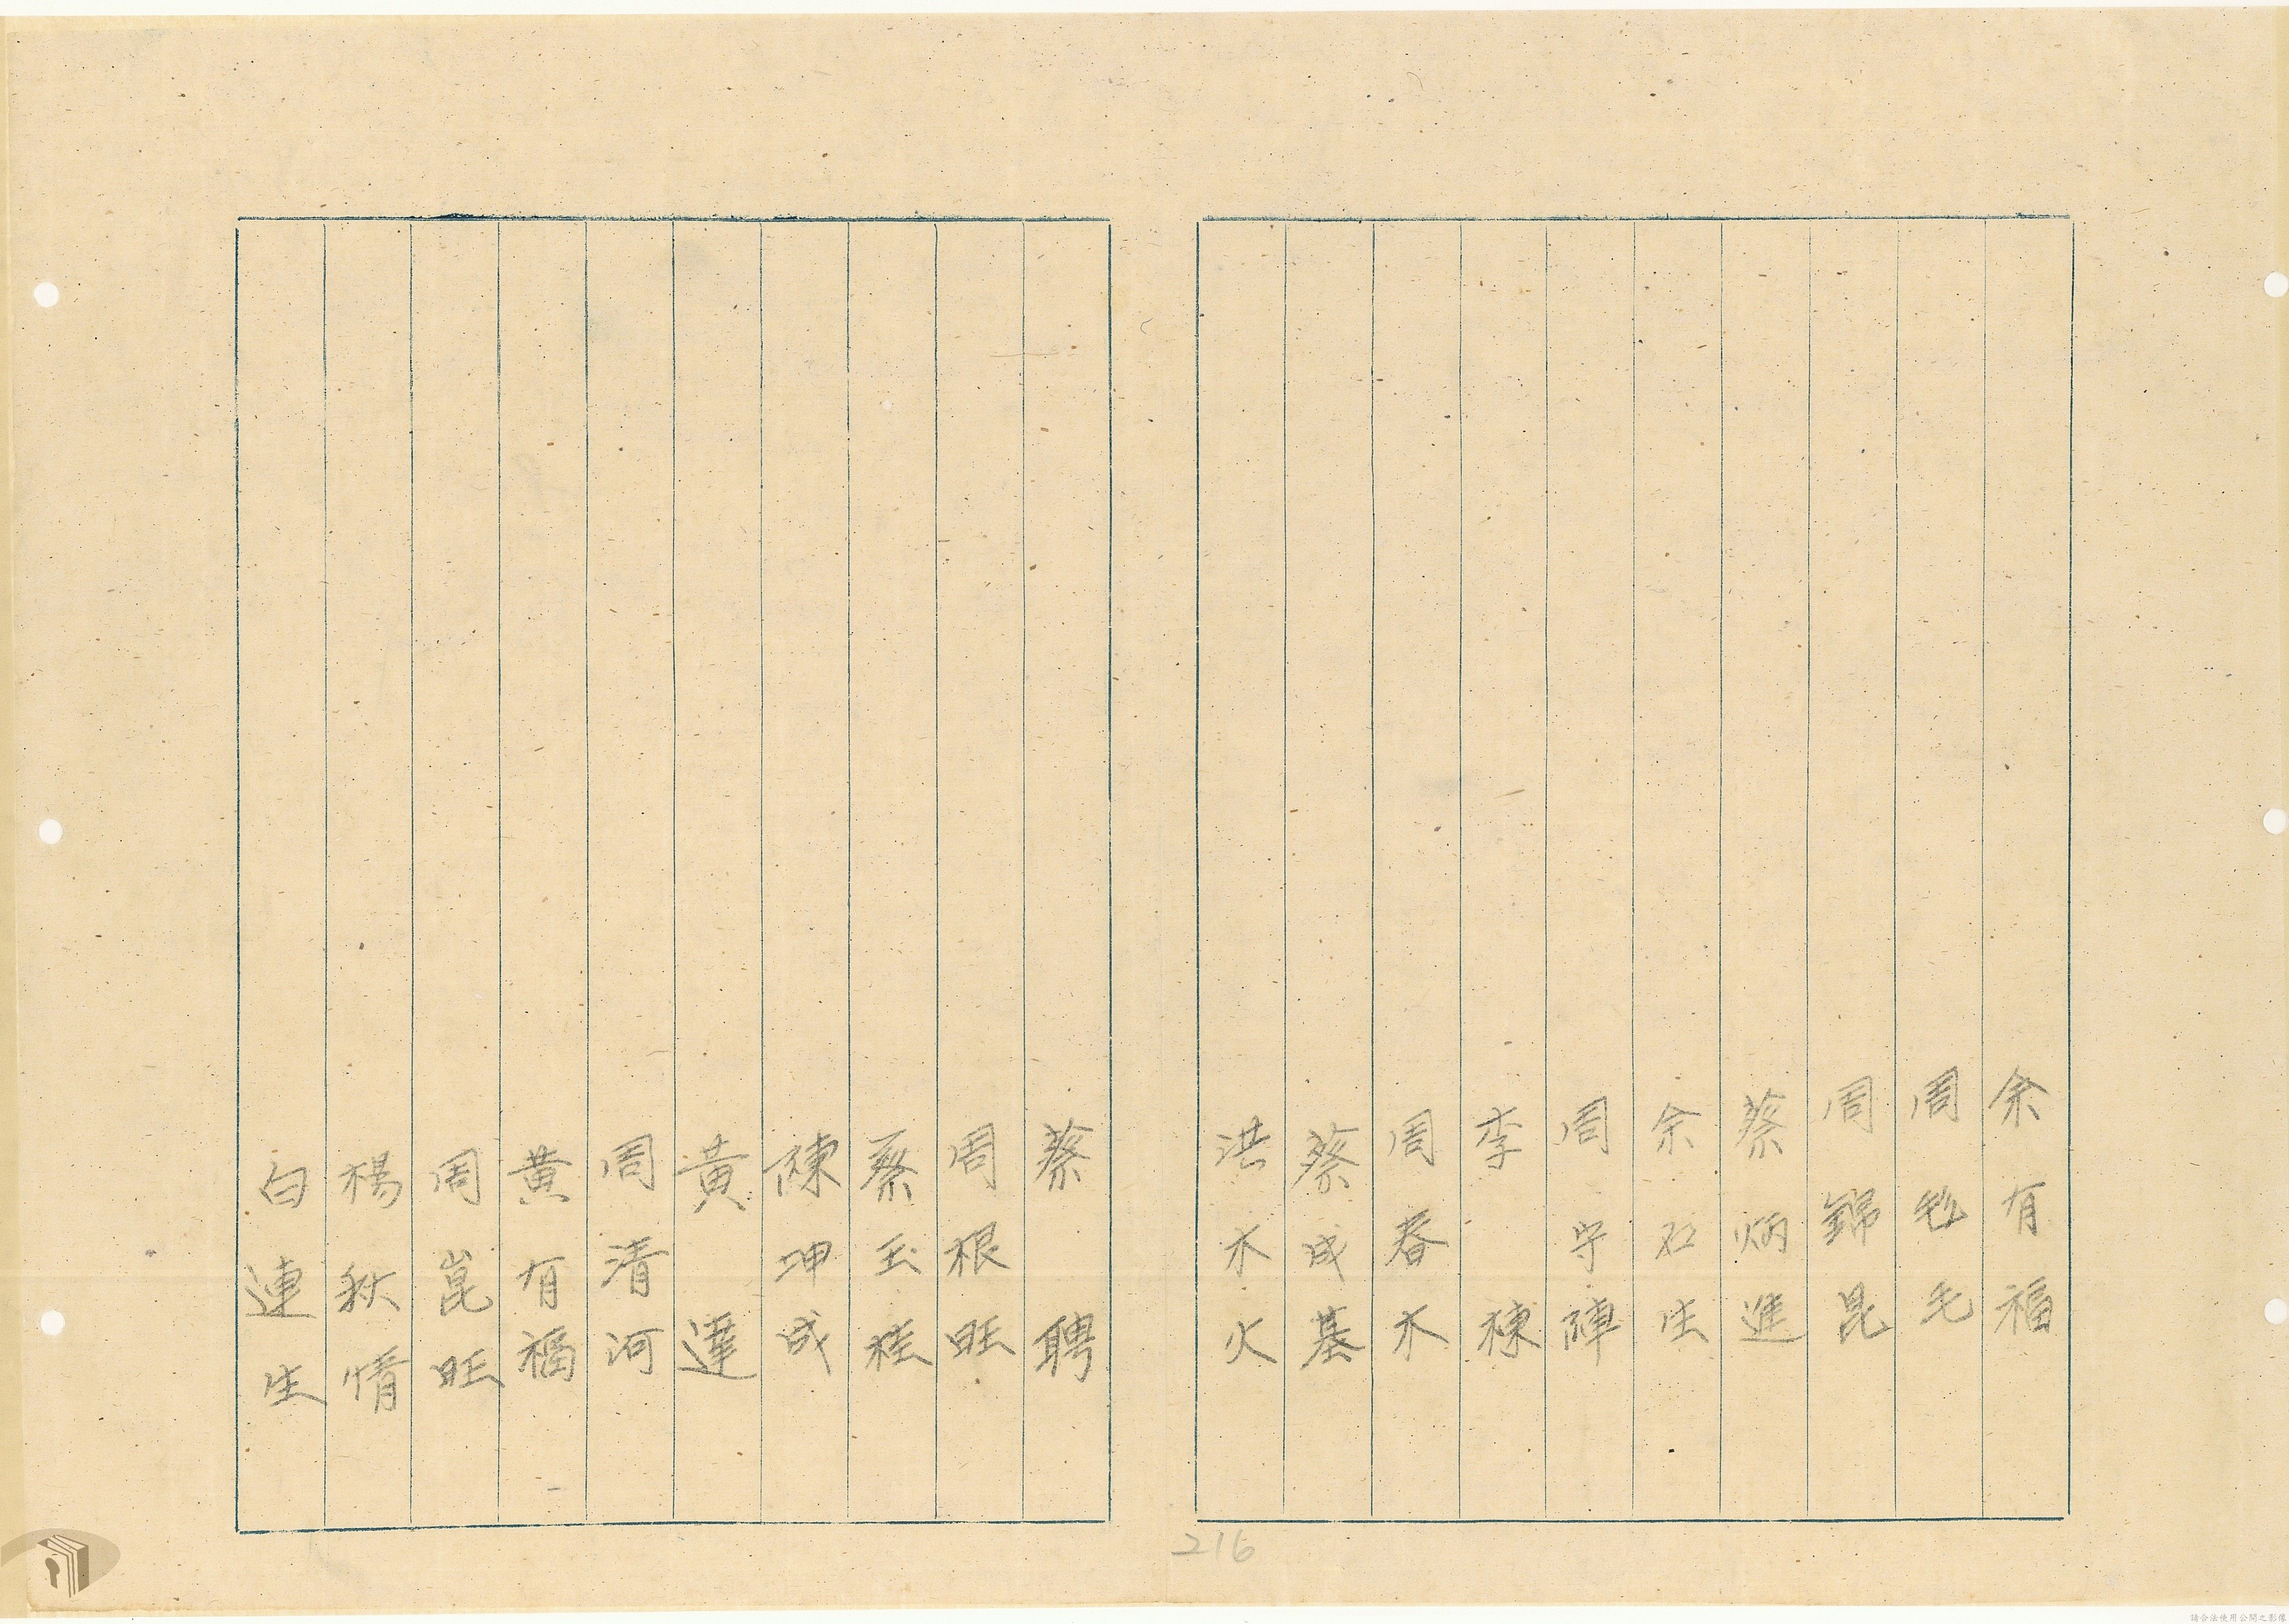 余有福
周乾毛
周錦昆
蔡炳進
余石生
周守陣
李棟
周春木
蔡成基
洪水火
蔡聘
周根旺
蔡玉桂
陳坤成
黃達
周清河
黃有福
周崑旺
楊秋情
白連生
216
請合法使用公開之影像